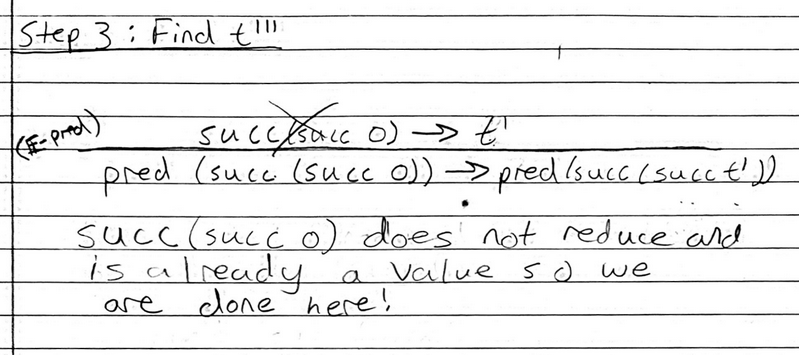 Step 3 : Find t'''
(E-pred) succ(succ 0) → t'
pred (succ (succ 0)) → pred(succ(succ t'))
succ(succ 0) does not reduce and
is already a value so we
are done here!